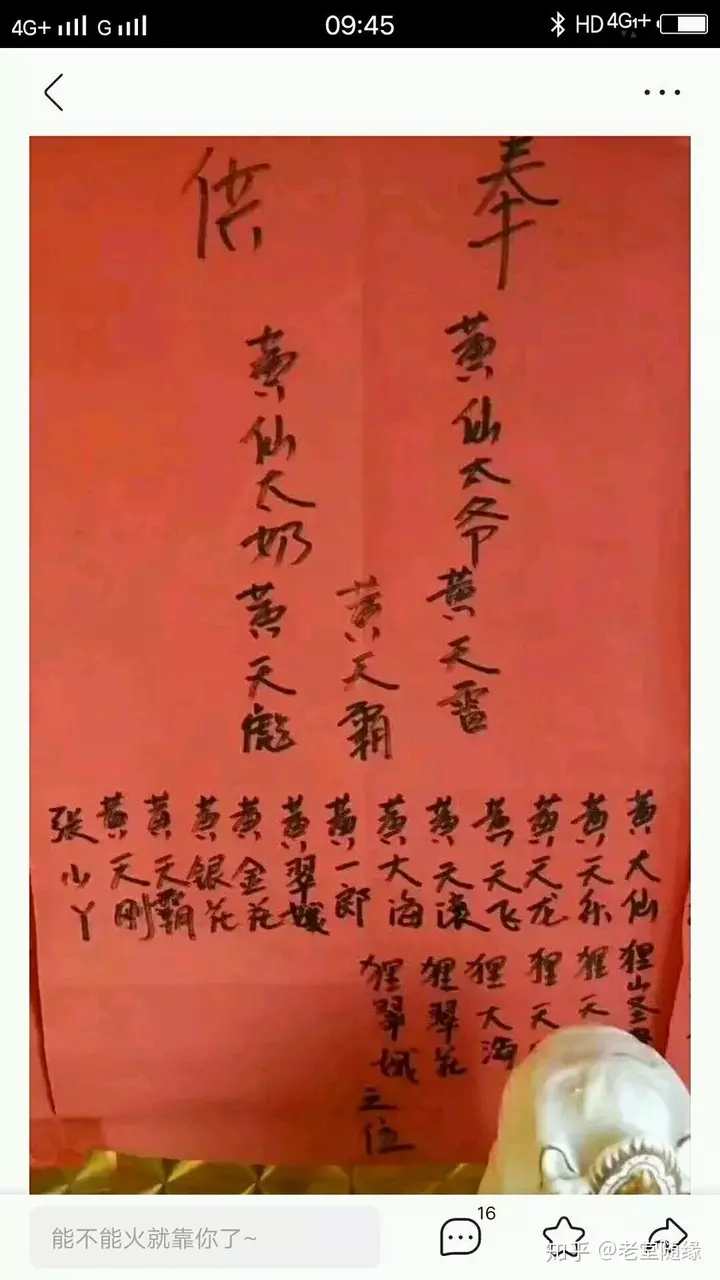 4G+ G 09:45 HD 4G1+
奉
供
黄仙太爷 黄天雷
黄天霸
黄仙太奶 黄天彪
黄大仙
黄天乐
黄天龙
黄天飞
黄天滚
黄大海
黄一郎
黄翠娥
黄金花
黄银花
黄天霸
黄天刚
张小丫
狸山圣
狸天
狸天
狸大海
狸翠花
狸翠娥 之位
能不能火就靠你了~
16
知乎 @老堂随缘